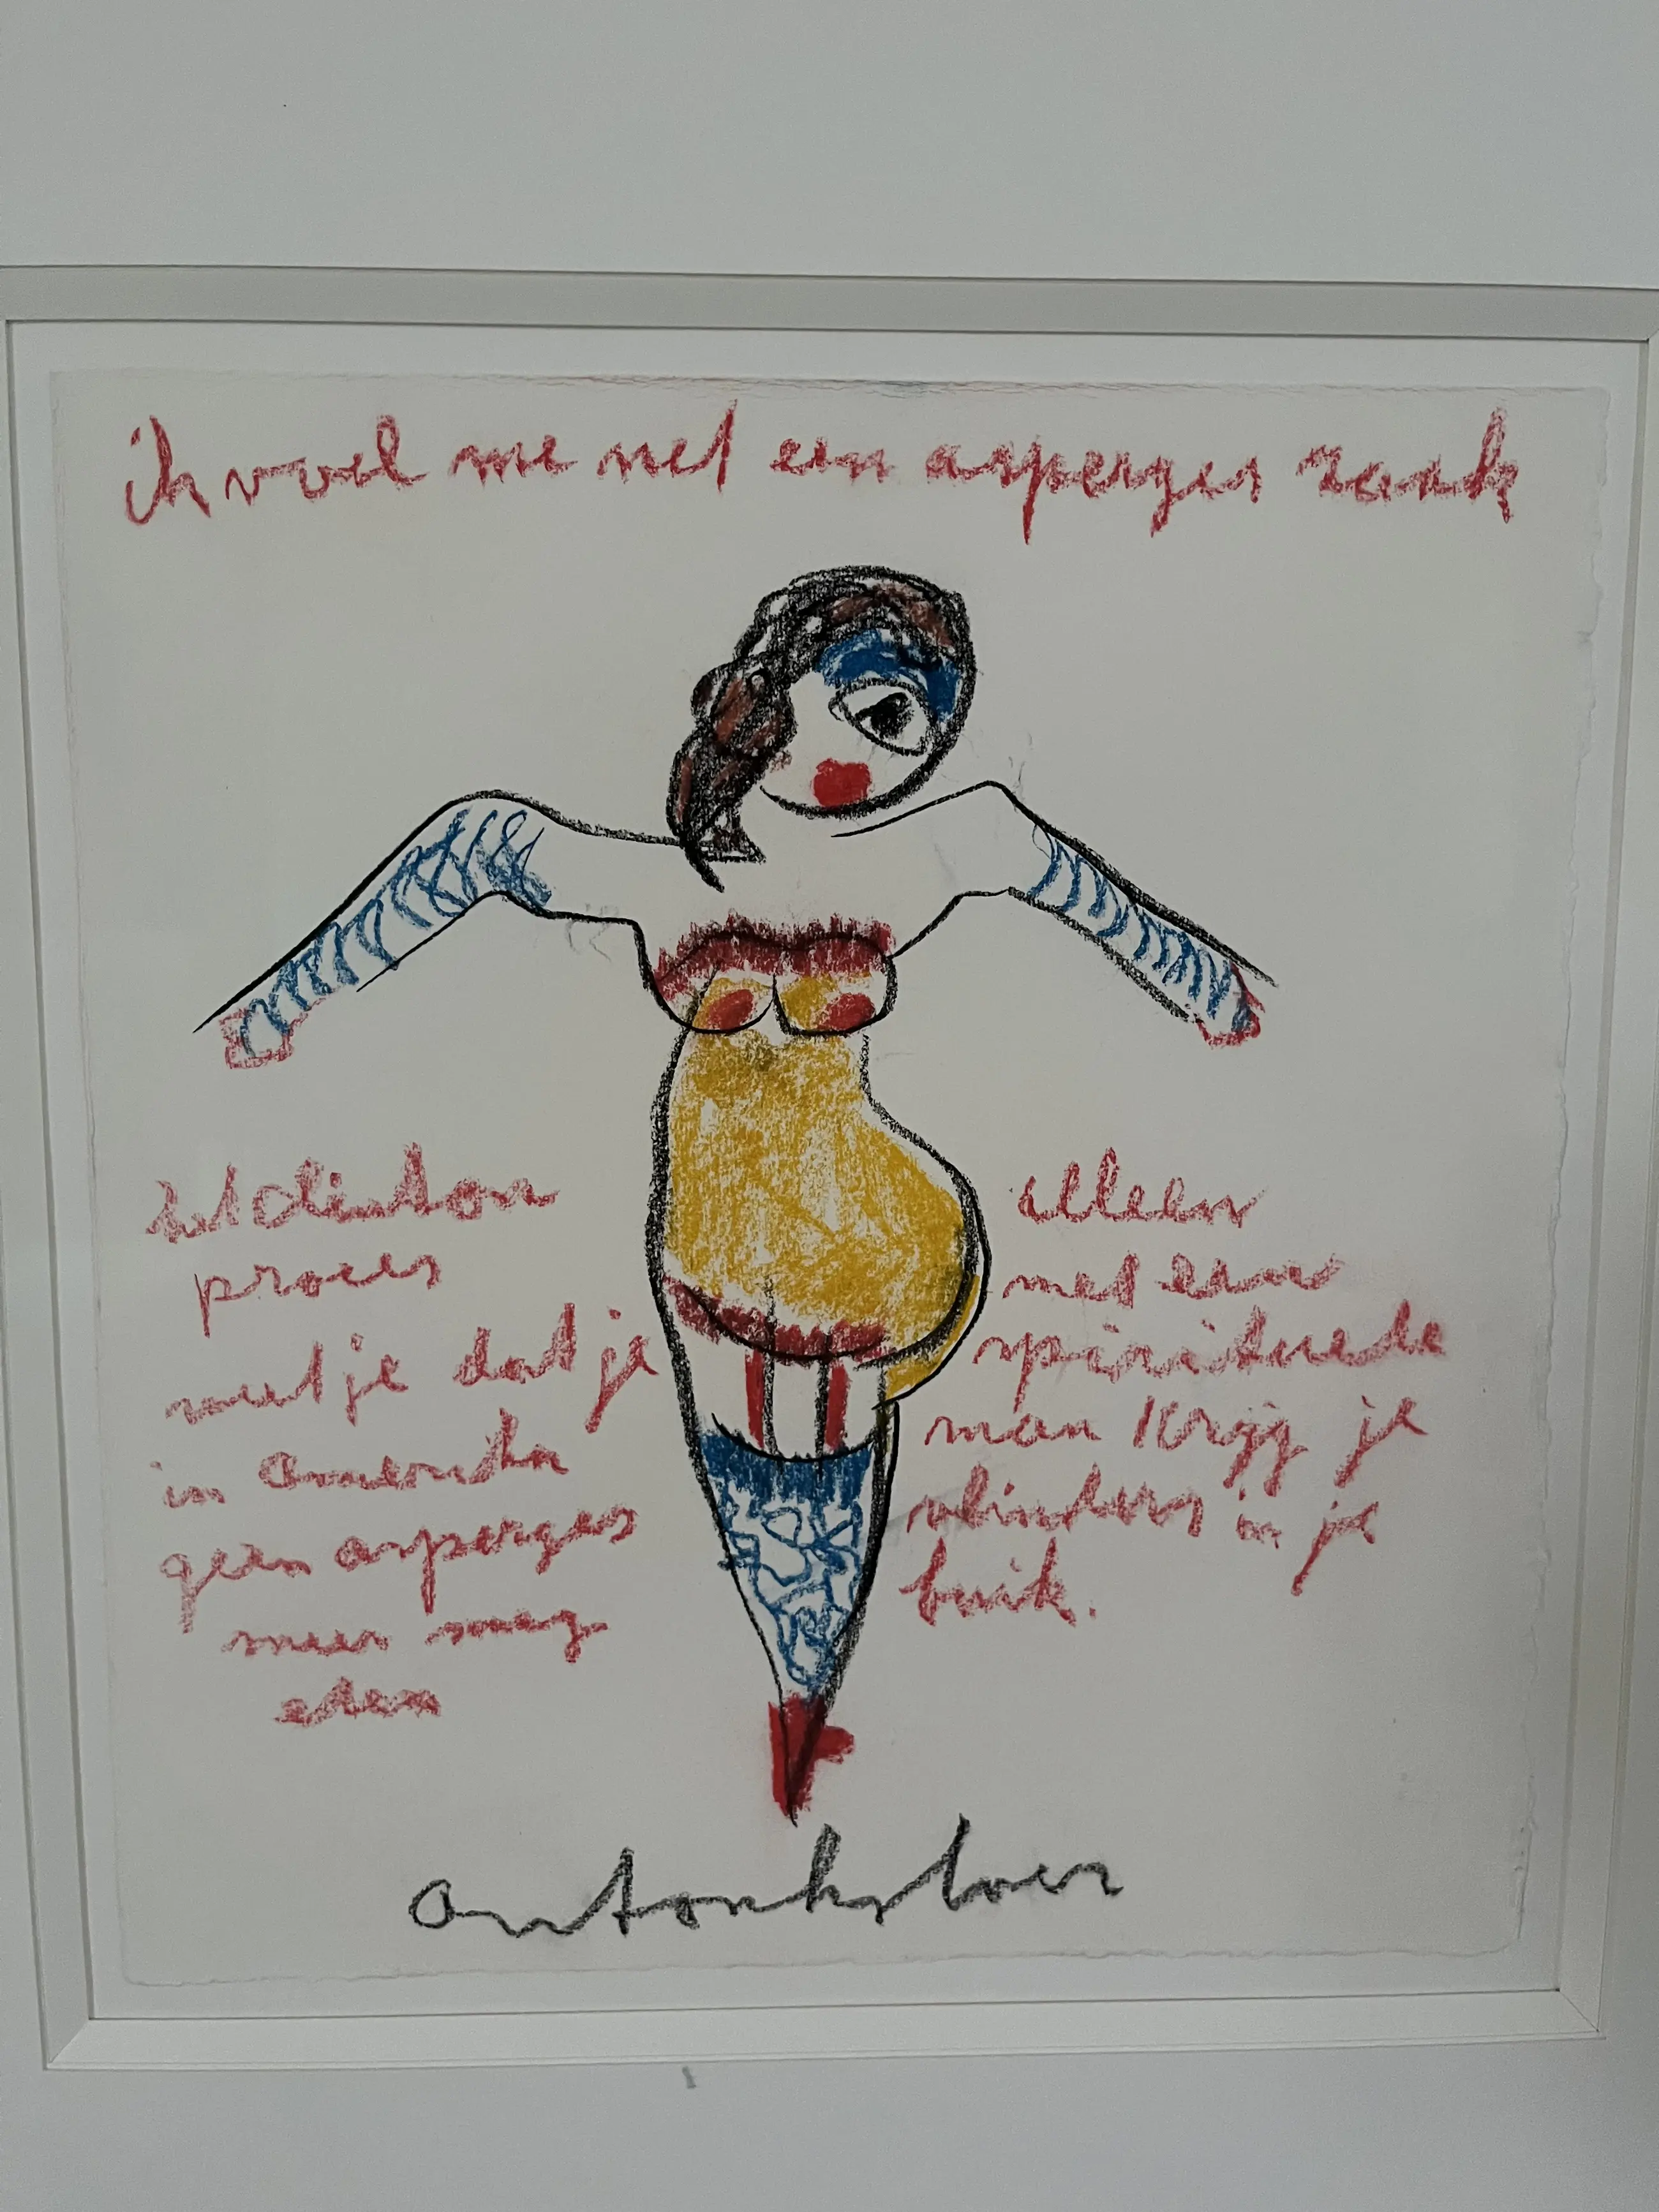 ik voel me net een asperges zaak
het clinton
proces
weet je dat je
in Amerika
geen asperges
meer mag
eten
alleen
met een
spirituele
man krijg je
vlinders in je
buik.